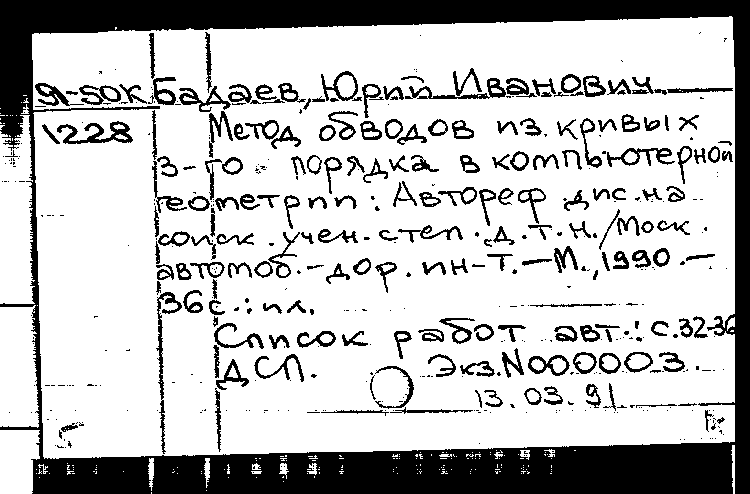 91-50К Бадаев, Юрий Иванович.
1228 Метод обводов из кривых
3-го порядка в компьютерной
геометрии: Автореф дис. на
соиск. учен. степ. д.т.н. / Моск.
автомоб.-дор. ин-т. — М., 1990. —
36с.: ил.
Список работ авт.: с.32-36
ДСП. Экз.N000003.
13.03.91
5